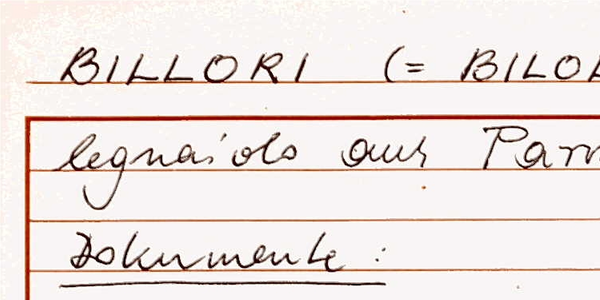 BILLORI (= BILOL
legnaiolo aus Parm
Dokumente: